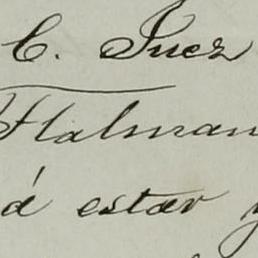 C. Juez
Halman
á estar y